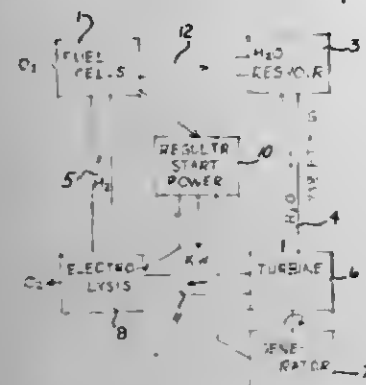 1
12
O₂
FUEL
CELLS
H₂O
RESVOIR
3
REGULTR
START
POWER
10
5
H₂
H₂O
4
O₂
ELECTRO
LYSIS
KW
TURBINE
6
8
GENE-
RATOR